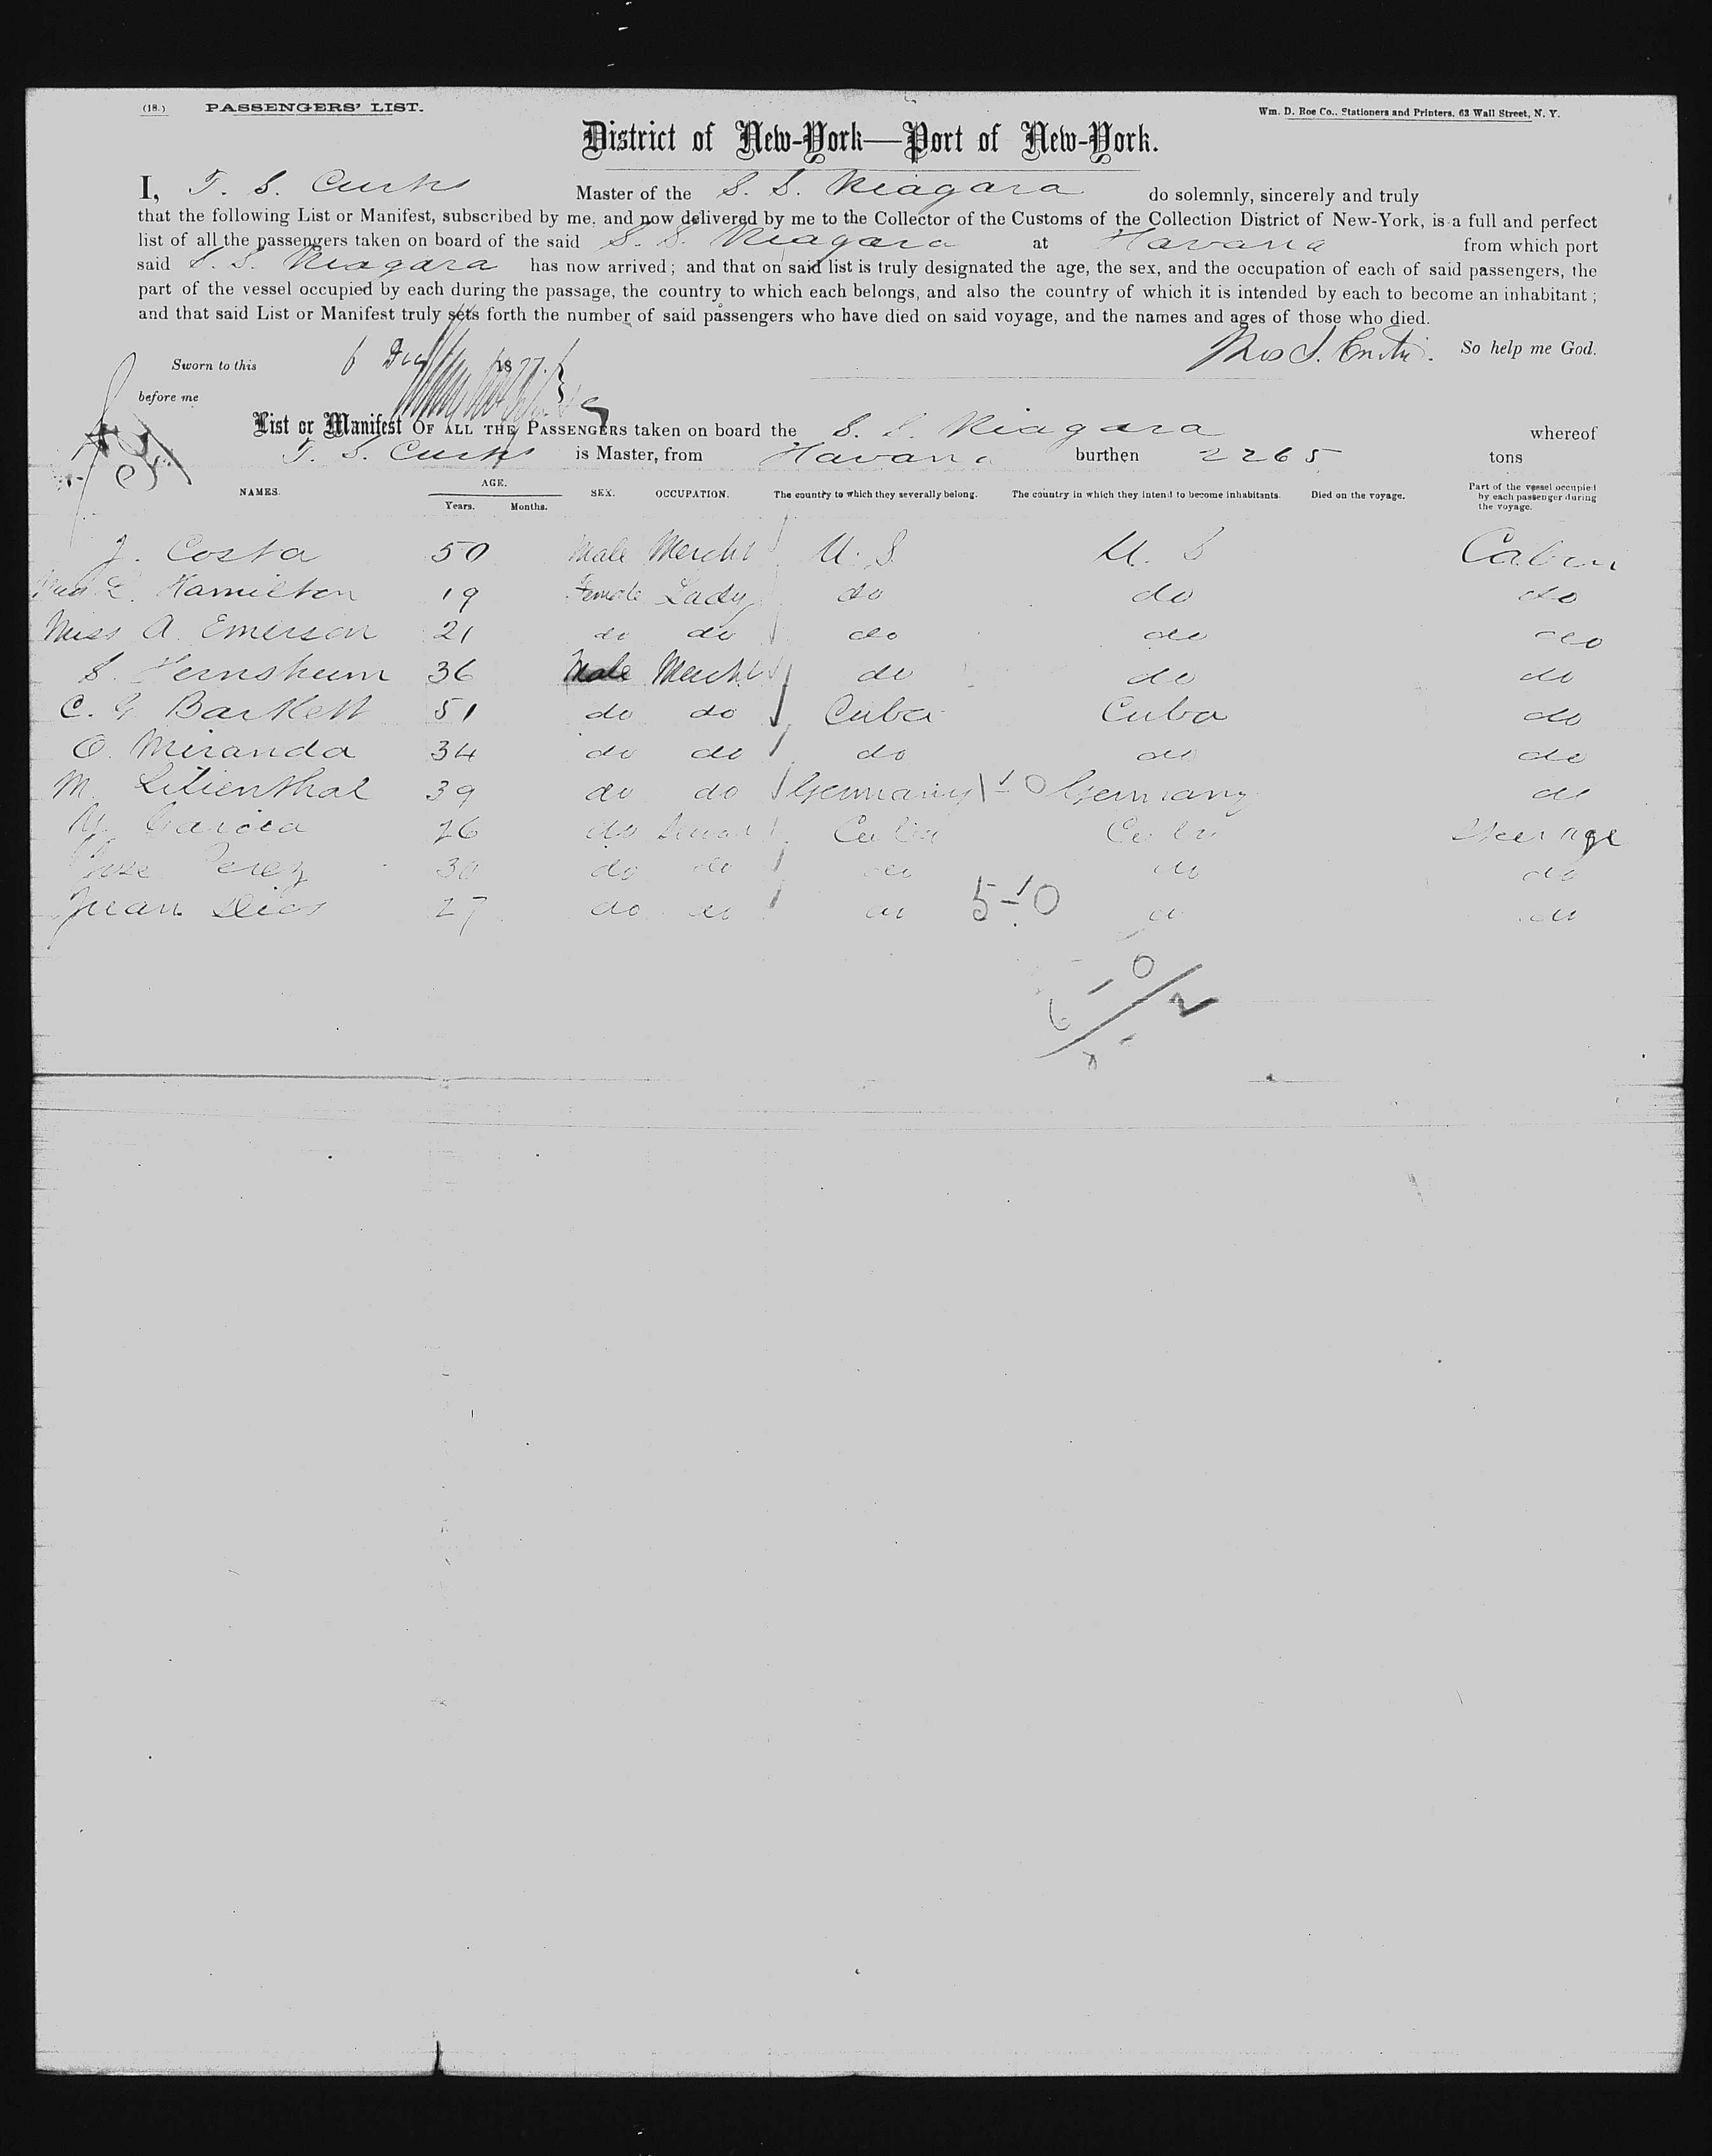 (18.) PASSENGERS' LIST. Wm. D. Roe Co., Stationers and Printers, 63 Wall Street, N. Y.
District of New-York—Port of New-York.
I, T. S. Curtis Master of the S. S. Niagara do solemnly, sincerely and truly
that the following List or Manifest, subscribed by me, and now delivered by me to the Collector of the Customs of the Collection District of New-York, is a full and perfect
list of all the passengers taken on board of the said S. S. Niagara at Havana from which port
said S. S. Niagara has now arrived; and that on said list is truly designated the age, the sex, and the occupation of each of said passengers, the
part of the vessel occupied by each during the passage, the country to which each belongs, and also the country of which it is intended by each to become an inhabitant;
and that said List or Manifest truly sets forth the number of said passengers who have died on said voyage, and the names and ages of those who died.
Thos S. Curtis. So help me God.
Sworn to this 6 1877.
before me
List or Manifest OF ALL THE PASSENGERS taken on board the S. S. Niagara whereof
T. S. Curtis is Master, from Havana burthen 2265 tons
NAMES. AGE. Years. Months. SEX. OCCUPATION. The country to which they severally belong. The country in which they intend to become inhabitants. Died on the voyage. Part of the vessel occupied by each passenger during the voyage.
J. Costa 50 Male Mercht U. S. U. S Cabin
Hamilton 19 Female Lady do do do
Miss A. Emerson 21 do do do do do
S. 36 Male Mercht do do do
C. G Bartlett 51 do do Cuba Cuba do
O. Miranda 34 do do do do do
M. Lilienthal 39 do do Germany 1-0 Germany do
Garcia 26 do Cuba Cuba Steerage
Jose Perez 30 do do do do do
Juan Dios 27 do do do 5-10 do do
6 - 0
2